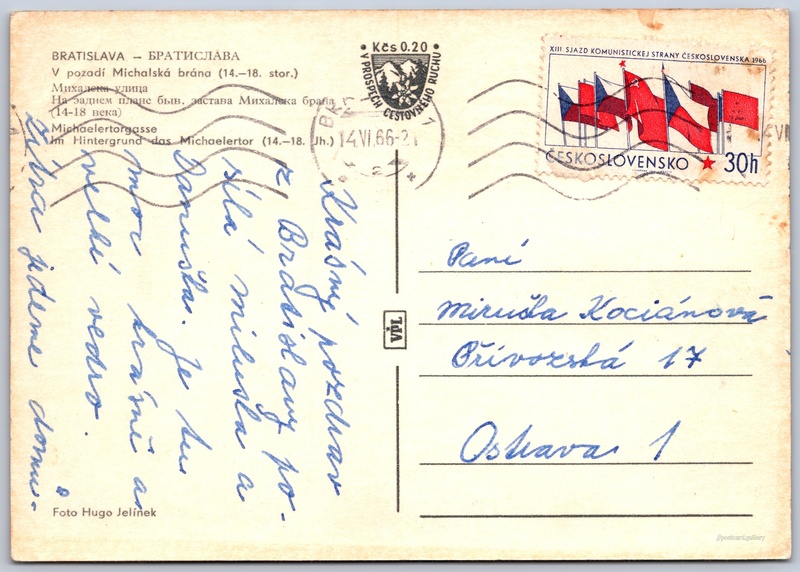 BRATISLAVA — БРАТИСЛАВА
V pozadí Michalská brána (14.–18. stor.)
Михалска улица
На заднем плане быв. застава Михалска брана
(14-18 века)
Michaelertorgasse
Im Hintergrund das Michaelertor (14.–18. Jh.)
Kčs 0.20
V PROSPECH CESTOVNÉHO RUCHU
14.VI.66-21
XIII SJAZD KOMUNISTICKEJ STRANY ČESKOSLOVENSKA 1966
ČESKOSLOVENSKO 30h
Krásný pozdrav
z Bratislavy po-
sílá miluška a
Danuška. Je tu
moc krásně a
velké vedro.
Zítra jedeme domů.
VPL
Paní
Miruška Kociánová
Přívozská 17
Ostrava 1
Foto Hugo Jelínek
@postcard.gallery